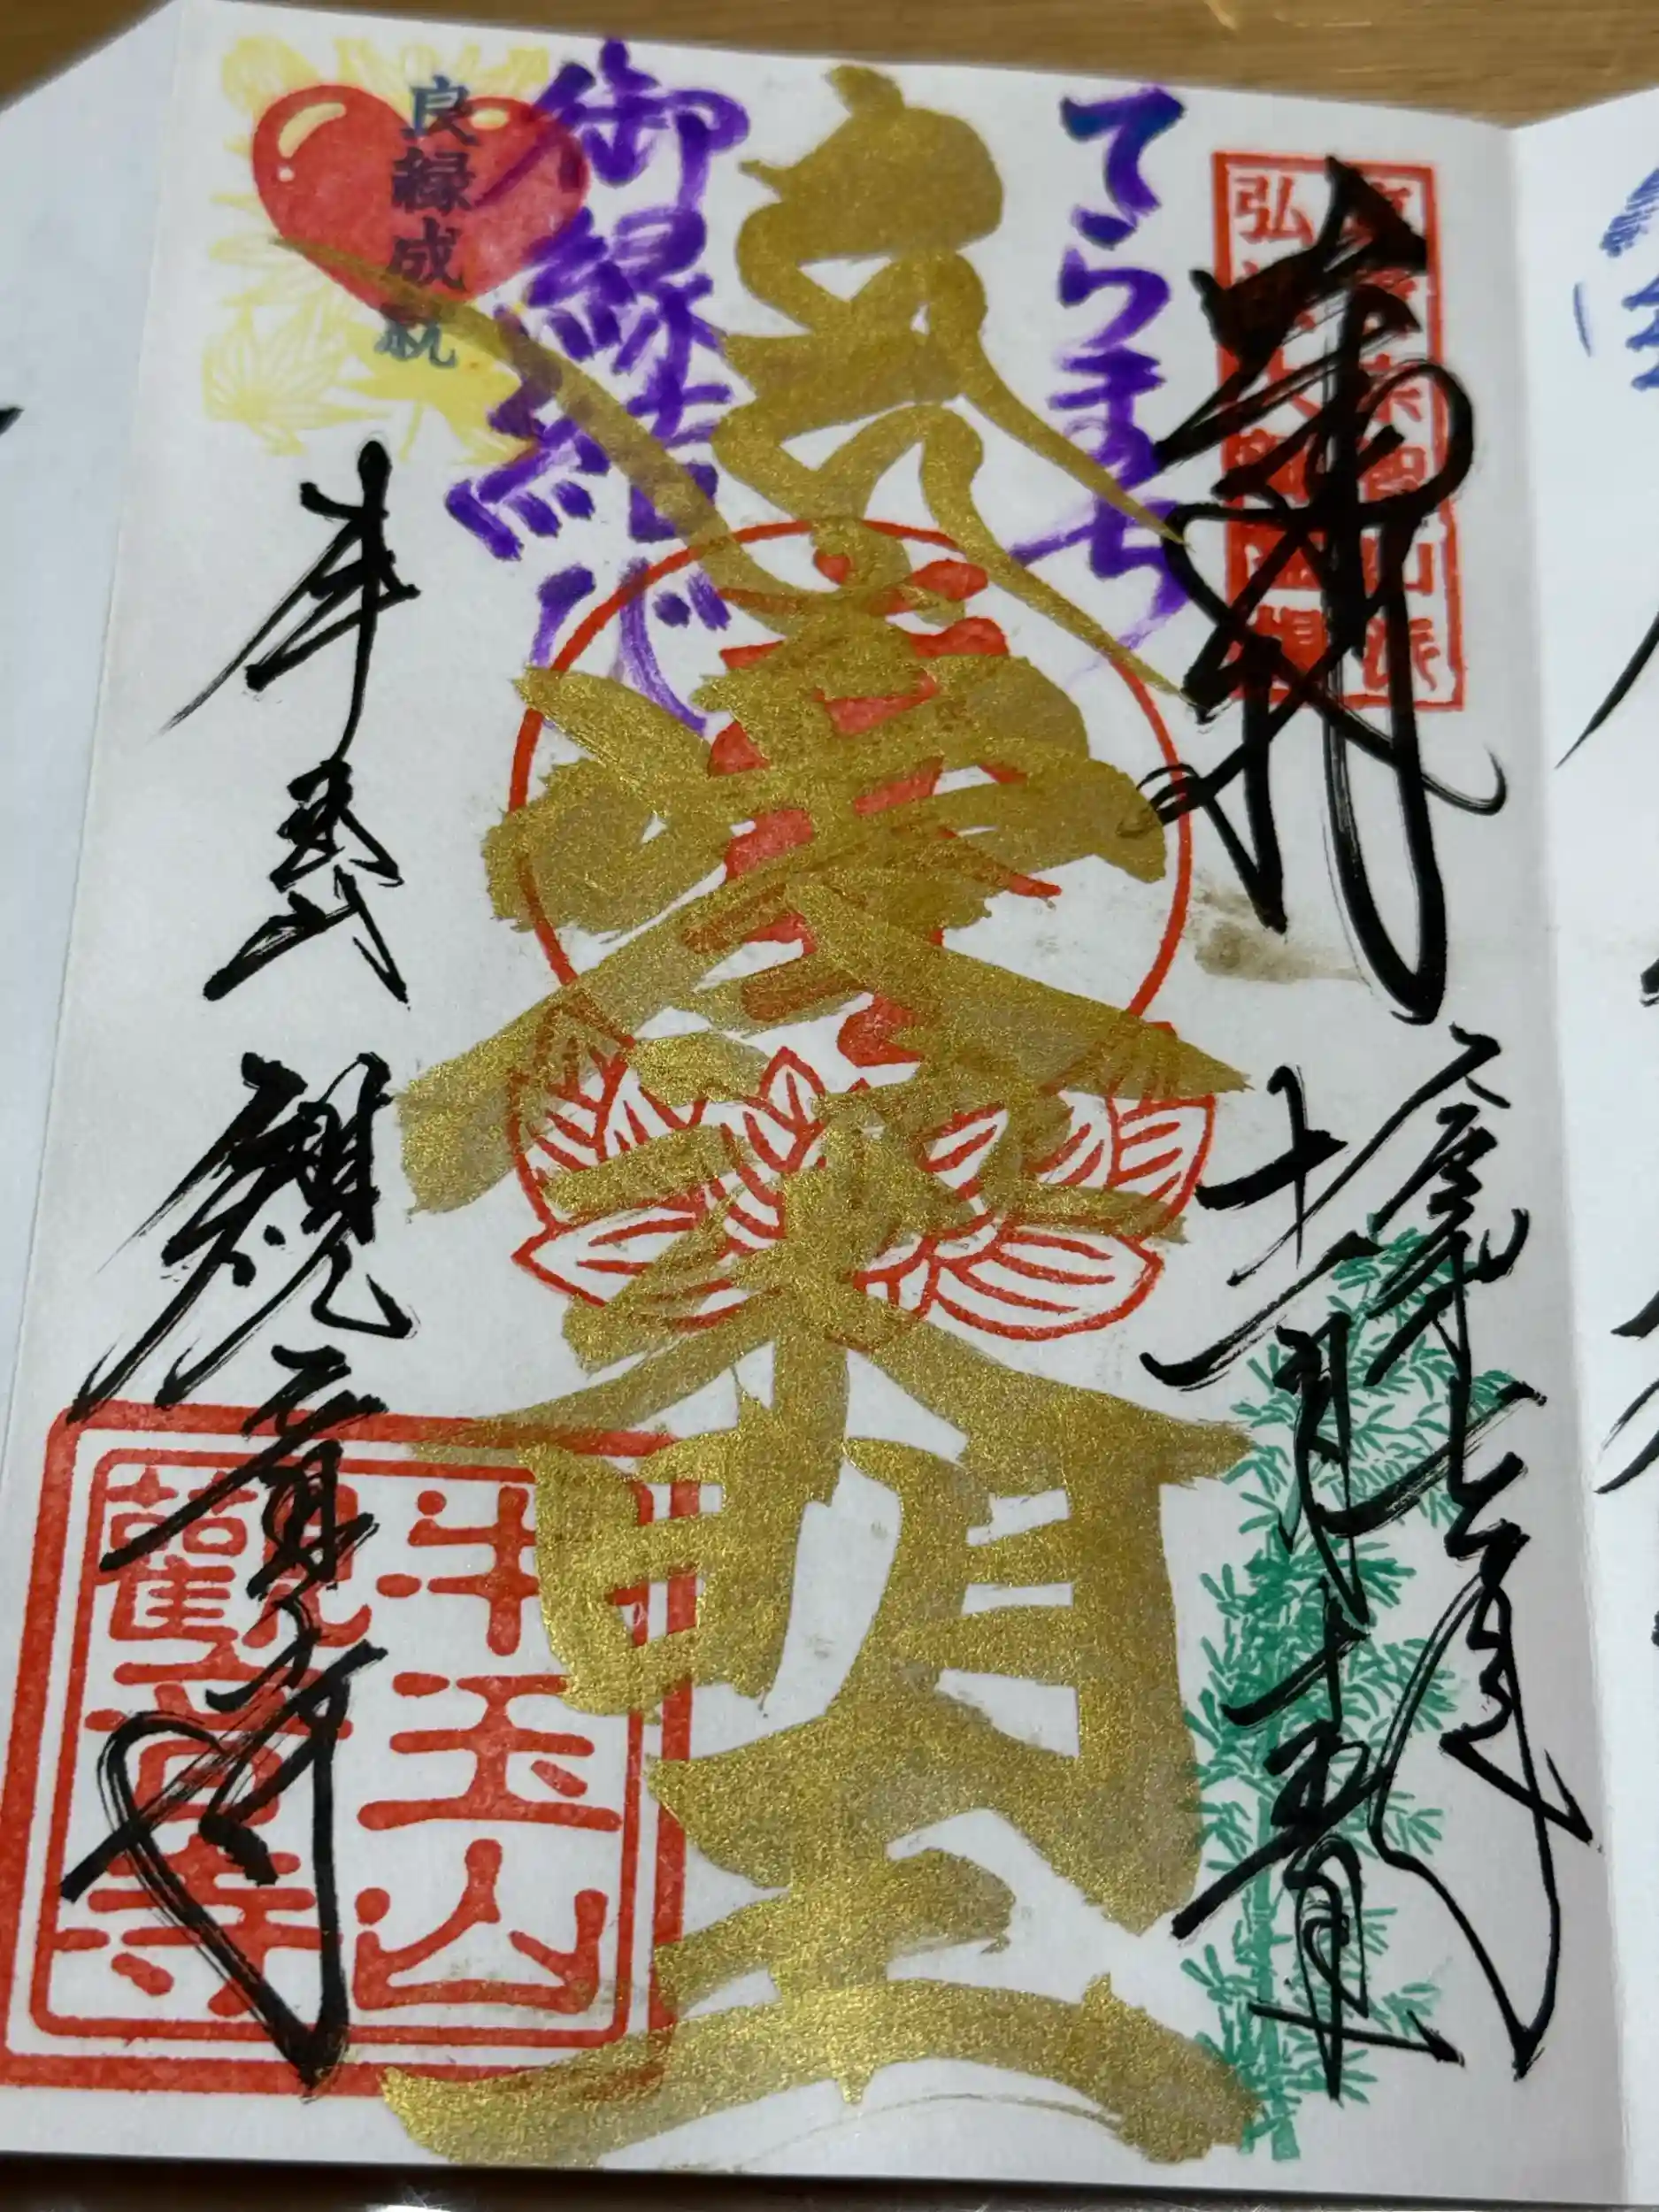 奉拝
てらまち
御縁結び
良縁成就
愛染明王
令和七年
十一月十五日
牛玉山
観音寺
牛玉山
観音寺